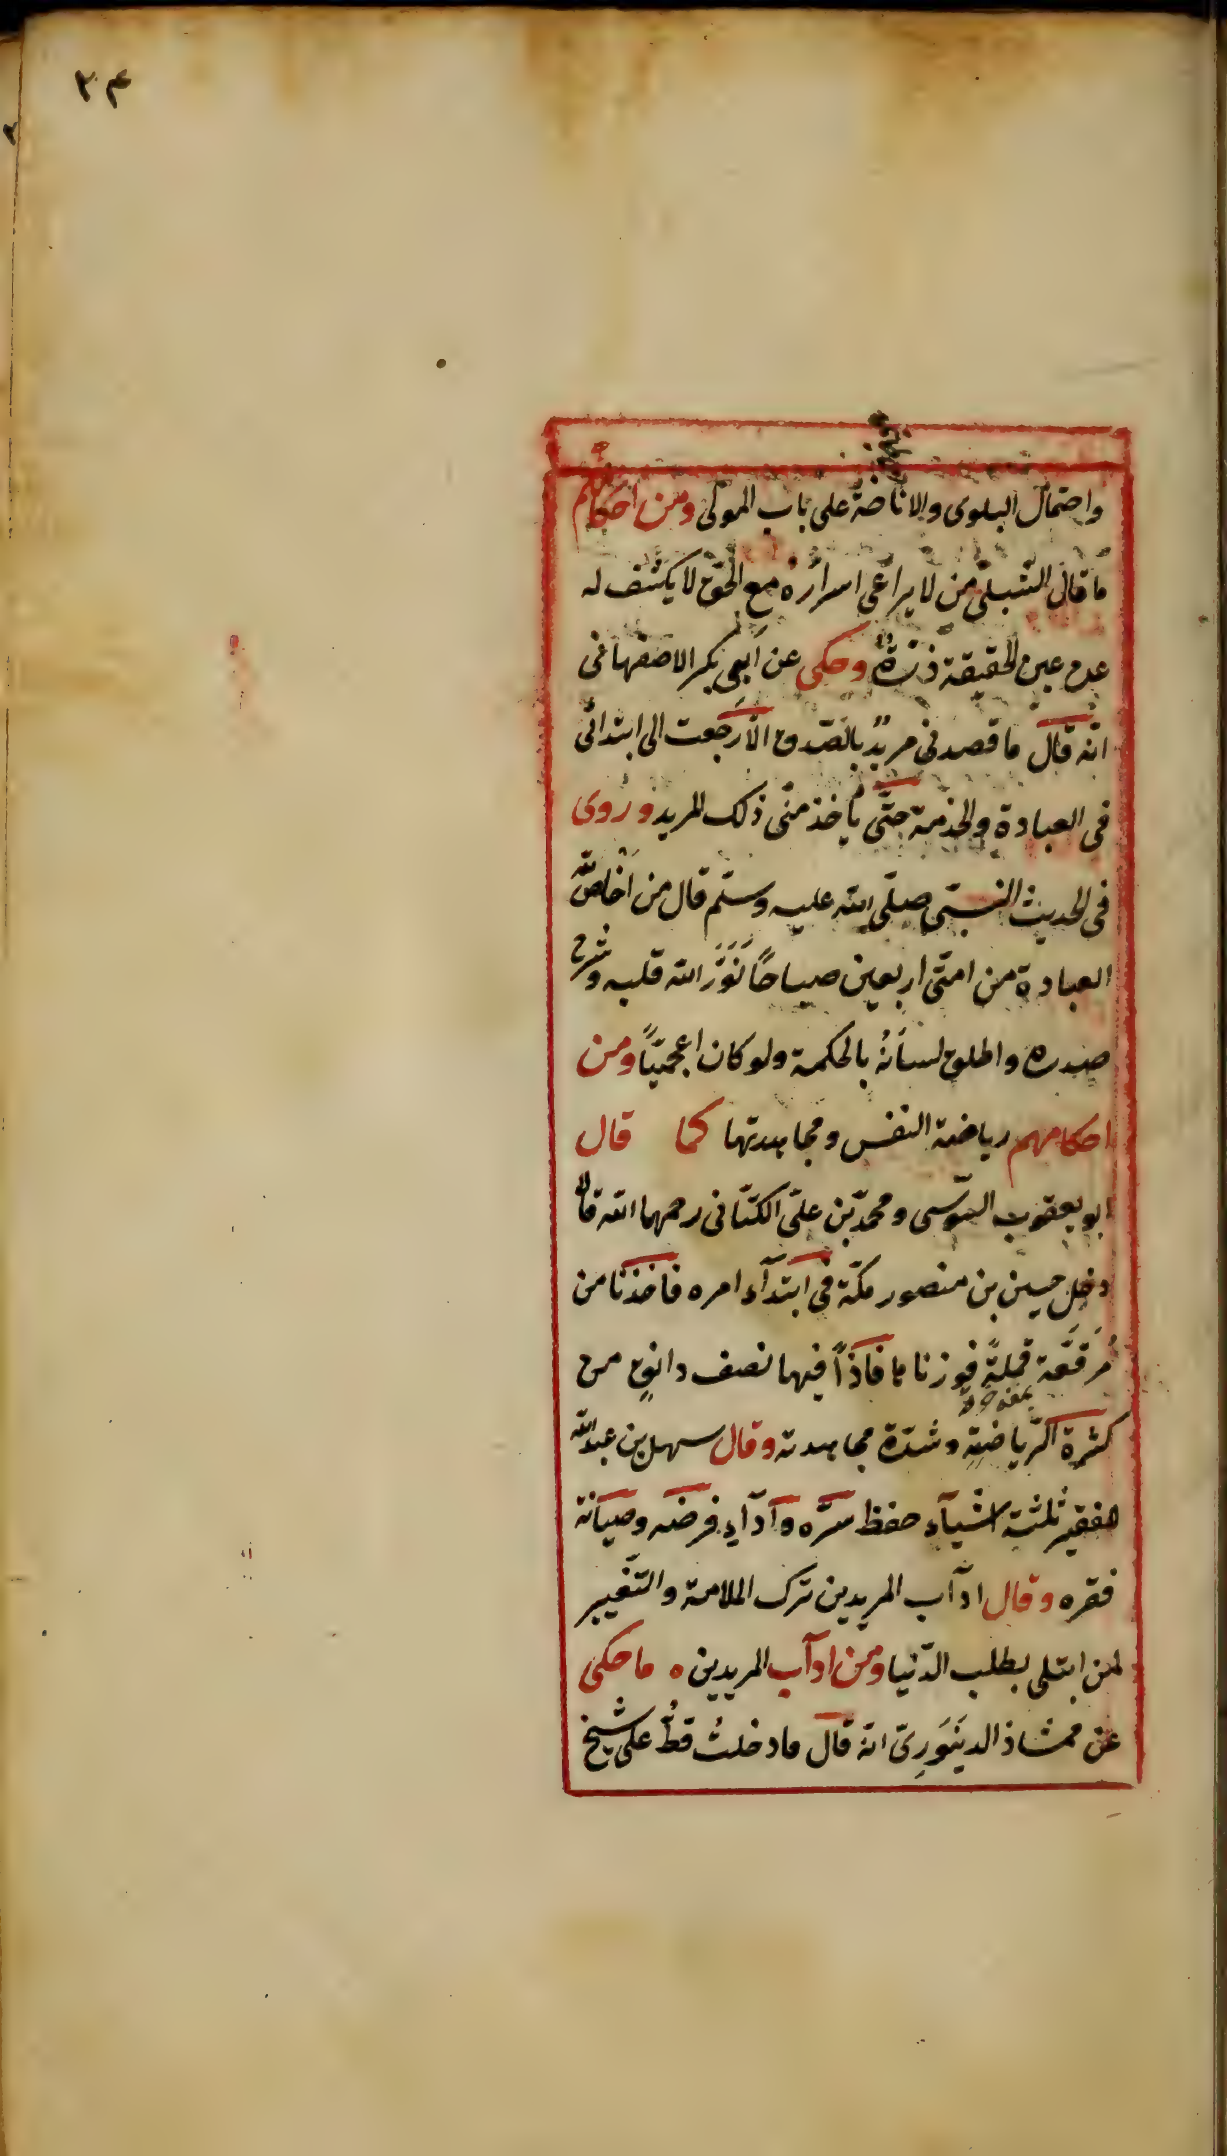 ٣٤
واحتمال البلوى والاناضة على باب المولى ومن احكامهم
ما قال الشبلىّ من لا يراعى اسراره مع الحق لا يكشف له
عن عين الحقيقة ذرّة وحكى عن ابى بكر الاصفهانى
انّه قال ما قصدنى مريدٌ بالصّدق الّا رجعت الى ابتدائى
فى العبادة والخدمة حتّى يأخذ منّى ذلك المريد وروى
فى الحديث النبىّ صلّى الله عليه وسلّم قال من اخلص لله
العبادة من امتى اربعين صباحًا نَوَّرَ الله قلبه وشرح
صدره واطلق لسانهُ بالحكمة ولو كان اعجميًّا ومن
احكامهم رياضة النفس ومجاهدتها كما قال
ابو يعقوب السّوسى ومحمّد بن علىّ الكتّانى رحمهما الله قالا
دخل حسين بن منصور مكّة فى ابتدآء امره فاخذنا من
مُرَقَّعَة قملةً فوزناها فاذاً فيها نصف دانق من
كثرة الرّياضة وشدّة مجاهدته وقال سهل بن عبدالله
للفقير ثلثة اشيآء حفظ سرّه وآدآء فرضه وصيانة
فقره وقال ادآب المريدين ترك الملامة والتّغيير
لمن ابتلى بطلب الدّنيا ومن ادآب المريدين ه ما حكى
عن ممشاذ الدينَوَرِىّ انّه قال ما دخلتُ قطّ على شيخ